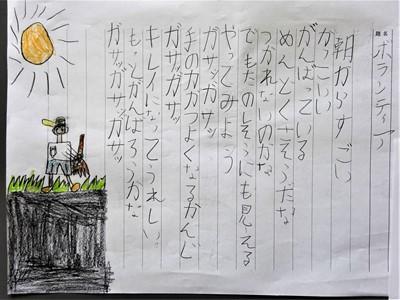 題名
ボランティア
朝からすごい
かっこいい
がんばっている
めんどくさそうだな
つかれないのかな
でもたのしそうにも見える
やってみよう
ガサッガサッ
手の力がつよくなるかんじ
ガサッガサッ
キレイになってうれしい
もっとがんばろうかな
ガサッガサッガサッ